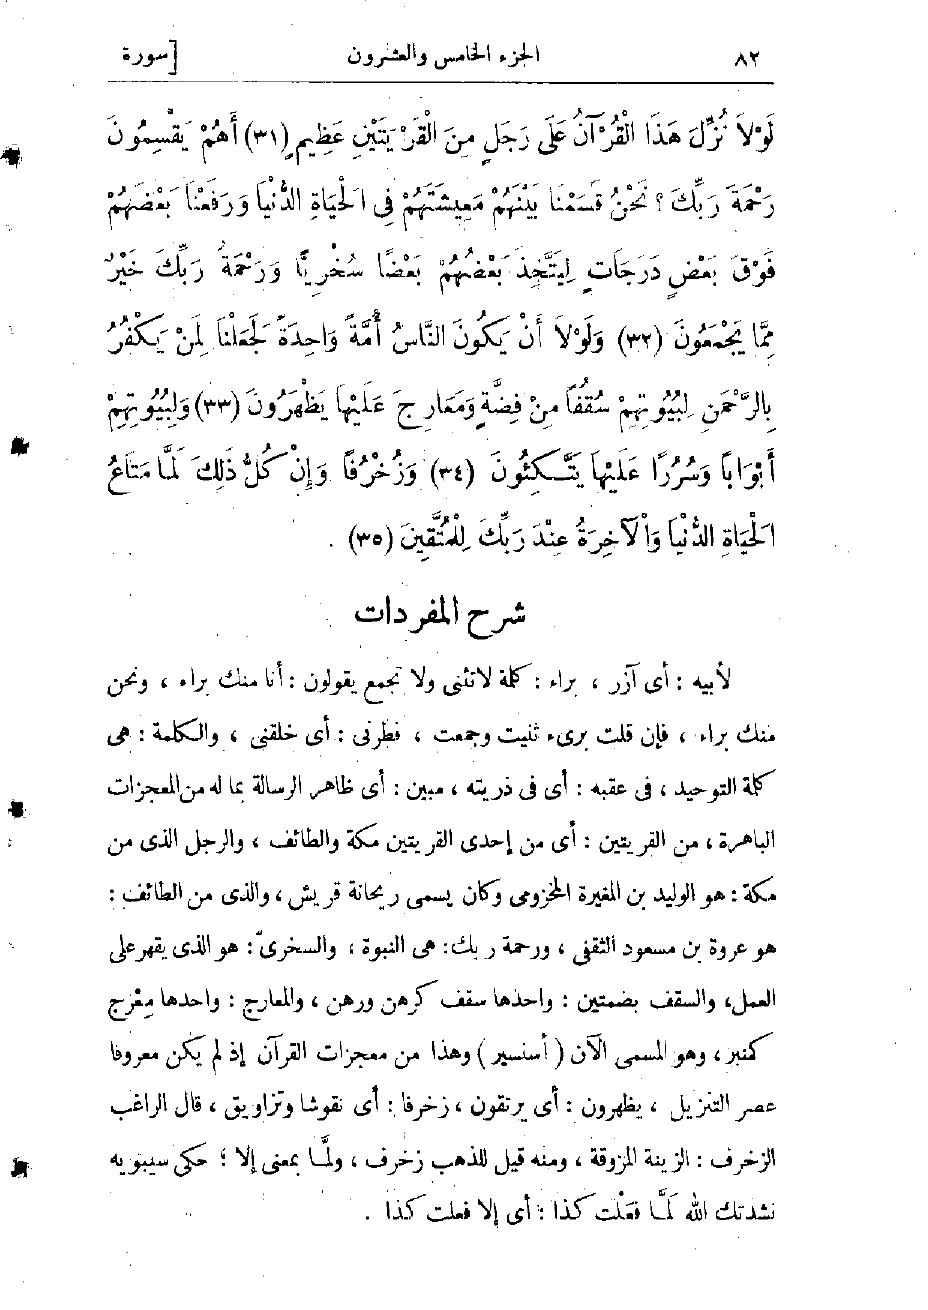 ٨٢ الجزء الخامس والعشرون [سورة
لَوْلاَ نُزِّلَ هَذَا الْقُرْآنُ عَلَى رَجُلٍ مِنَ الْقَرْيَتَيْنِ عَظِيمٍ (٣١) أَهُمْ يَقْسِمُونَ
رَحْمَةَ رَبِّكَ ؟ نَحْنُ قَسَمْنَا بَيْنَهُمْ مَعِيشَتَهُمْ فِى الْحَيَاةِ الدُّنْيَا وَرَفَعْنَا بَعْضَهُمْ
فَوْقَ بَعْضٍ دَرَجَاتٍ لِيَتَّخِذَ بَعْضُهُمْ بَعْضًا سُخْرِيًّا وَرَحْمَةُ رَبِّكَ خَيْرٌ
مِمَّا يَجْمَعُونَ (٣٢) وَلَوْلاَ أَنْ يَكُونَ النَّاسُ أُمَّةً وَاحِدَةً لَجَعَلْنَا لِمَنْ يَكْفُرُ
بِالرَّحْمَنِ لِبُيُوتِهِمْ سُقُفًا مِنْ فِضَّةٍ وَمَعَارِجَ عَلَيْهَا يَظْهَرُونَ (٣٣) وَلِبُيُوتِهِمْ
أَبْوَابًا وَسُرُرًا عَلَيْهَا يَتَّكِئُونَ (٣٤) وَزُخْرُفًا وَإِنْ كُلُّ ذَلِكَ لَمَّا مَتَاعُ
الْحَيَاةِ الدُّنْيَا وَالْآخِرَةُ عِنْدَ رَبِّكَ لِلْمُتَّقِينَ (٣٥) .
شرح المفردات
لأبيه : أى آزر ، براء : كلمة لاتثنى ولا تجمع يقولون : أنا منك براء ، ونحن
منك براء ، فإن قلت برىء ثنيت وجمعت ، فطرنى : أى خلقنى ، والكلمة : هى
كلمة التوحيد ، فى عقبه : أى فى ذريته ، مبين : أى ظاهر الرسالة بما له من المعجزات
الباهرة ، من القريتين : أى من إحدى القريتين مكة والطائف ، والرجل الذى من
مكة : هو الوليد بن المغيرة المخزومى وكان يسمى ريحانة قريش ، والذى من الطائف :
هو عروة بن مسعود الثقفى ، ورحمة ربك : هى النبوة ، والسخرىّ : هو الذى يقهر على
العمل، والسقف بضمتين : واحذها سقف كرهن ورهن ، والمعارج : واحدها مِعْرج
كمنبر ، وهو المسمى الآن ( أسنسير ) وهذا من معجزات القرآن إذ لم يكن معروفا
عصر التنزيل ، يظهرون : أى يرتقون ، زخرفا : أى نقوشا وتزاويق ، قال الراغب
الزخرف : الزينة المزوقة ، ومنه قيل للذهب زخرف ، ولمَّا بمعنى إلا ؛ حكى سيبويه
نشدتك الله لَمَّا فعَلْت كذا : أى إلا فعلت كذا .